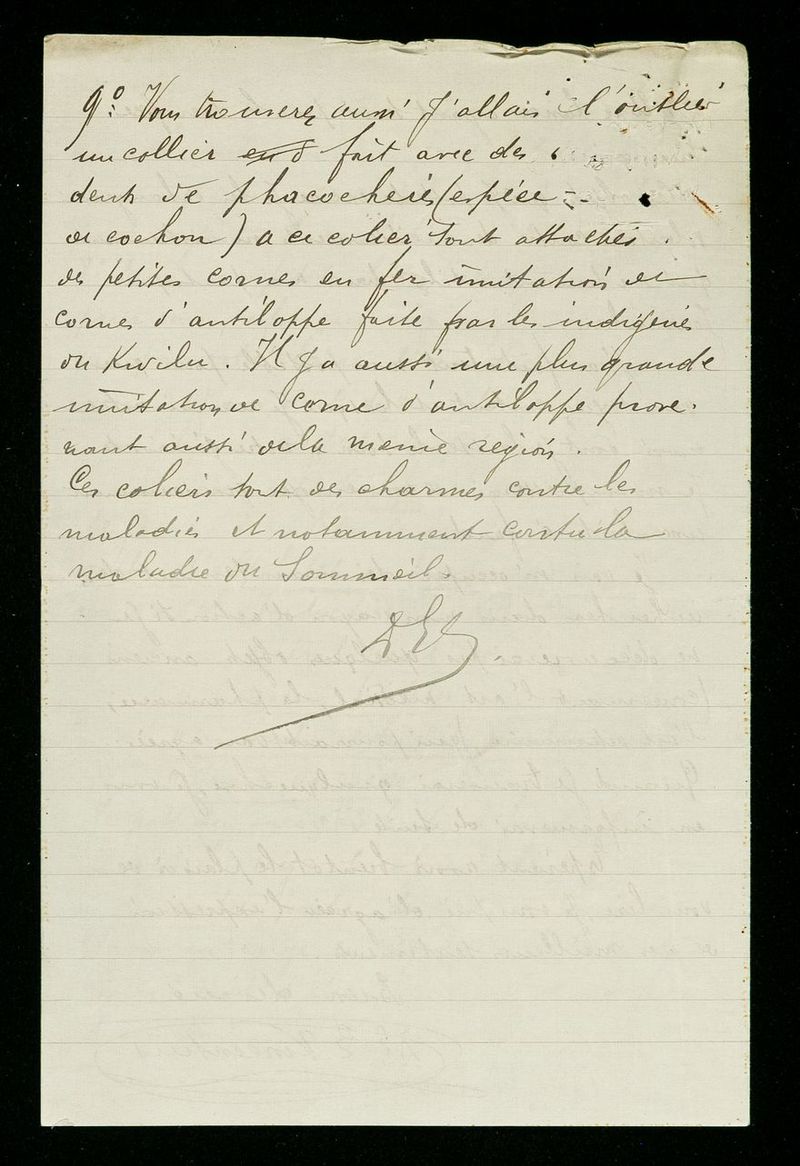 9º: Vous trouverez aussi j'allais l'oublier
un collier end fait avec des
dents de phacocheres (espéce
de cochon) a ce colier sont attachés
des petites cornes en fer imitation de
cornes d'antiloppe faite par les indigenes
du Kwilu. Il y a aussi une plus grande
imitation de corne d'antiloppe prove-
nant aussi de la meme region.
Ces coliers sont des charmes contre les
maladies et notamment contre la
maladie du Sommeil.